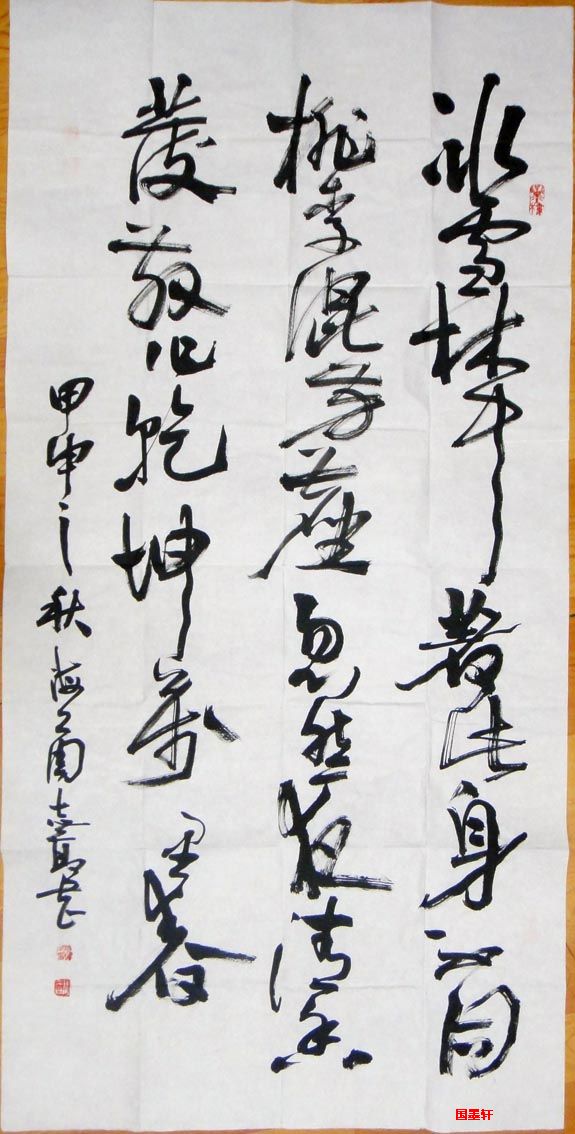 冰雪林中著此身不同
桃李混芳塵忽然一夜清香
發散作乾坤萬里春
甲申之秋
国墨轩